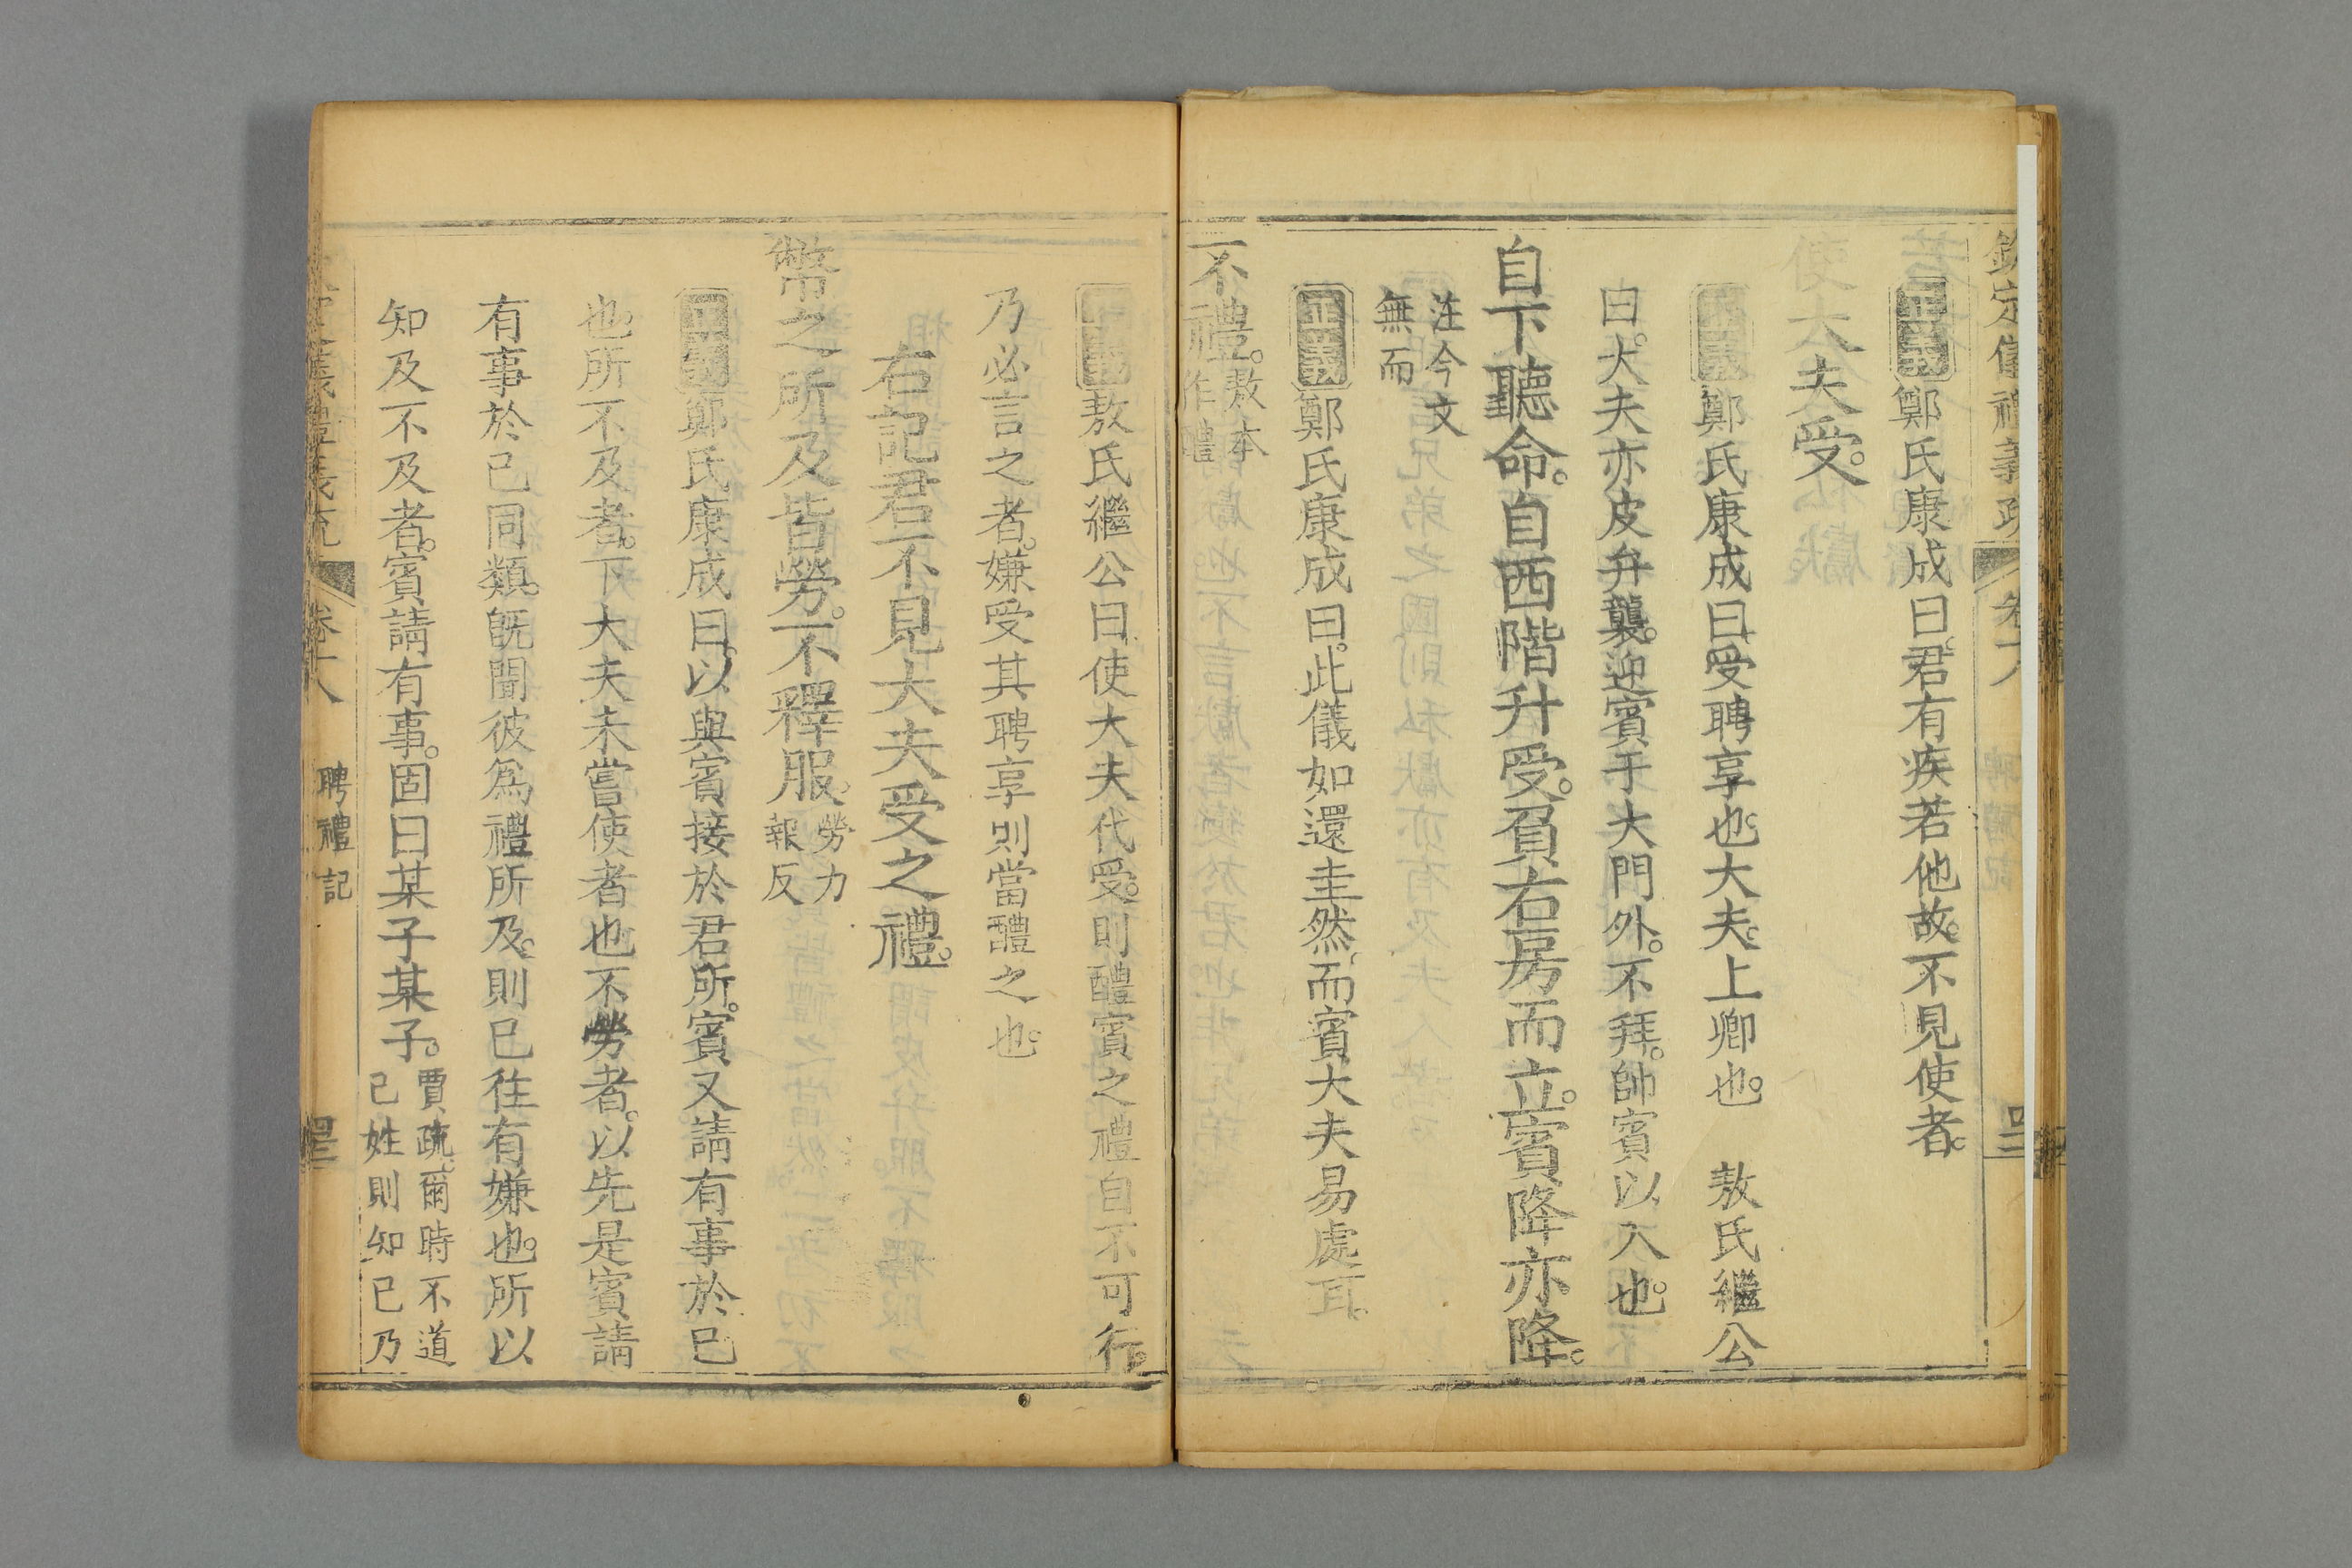 欽定儀禮義疏 卷十八 聘禮記
正義鄭氏康成曰。君有疾若他故。不見使者。
使大夫受。
正義鄭氏康成曰受聘享也。大夫。上卿也。 敖氏繼公
曰。大夫亦皮弁襲。迎賓于大門外。不拜。帥賓以入也。
自下聽命。自西階升受。負右房而立。賓降亦降。
注今文
無而
正義鄭氏康成曰。此儀如還圭然。而賓大夫易處耳。
不禮。敖本作醴
正義敖氏繼公曰。使大夫代受。則醴賓之禮自不可行。
乃必言之者。嫌受其聘享則當醴之也。
右記君不見大夫受之禮。
幣之所及皆勞。不釋服。勞力報反
正義鄭氏康成曰。以與賓接於君所。賓又請有事於己
也。所不及者。下大夫未嘗使者也不勞者。以先是賓請
有事於己同類。既聞彼爲禮所及。則己往有嫌也。所以
知及不及者。賓請有事。固曰某子某子。賈疏。爾時不道己姓則知己乃
儀禮義疏 卷十八 聘禮記